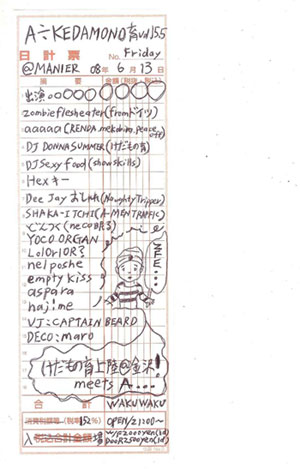 A÷KEDAMONO育vol.5.5
日計票 No. Friday
@MANIER 08年6月13日
摘要 金額(税抜・税込)
出演○○○○○○○○○○
zombieflesheater(fromドイツ)
aaaaa(RENDA
DJ DONNASUMMER(けだもの育)
DJ Sexy food(showskills)
Hexキー
Dee Jay おしゃれ(NaughtyTripper)
SHAKA-ITCHI(A-MEN TRAFFIC)
でんつく(neco眠る)
YOCO ORGAN
LolOrIOR?
nelposhe
empty kiss
aspara
hajime
VJ:CAPTAIN BEARD
DECO:maro
けだもの育上陸@金沢!
meets A....
合計 WAKUWAKU
消費税額等(税率 %) OPEN/21:00~
入場 税込合計金額 W/F2000yen(1d)
DooR2500yen(1d)